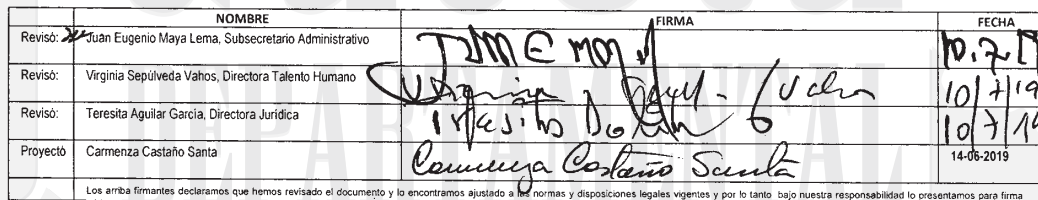 NOMBRE FIRMA FECHA
Revisó: Juan Eugenio Maya Lema, Subsecretario Administrativo
Revisó: Virginia Sepúlveda Vahos, Directora Talento Humano 10/7/19
Revisó: Teresita Aguilar García, Directora Jurídica 10/7/19
Proyectó Carmenza Castaño Santa Carmenza Castaño Santa 14-06-2019
Los arriba firmantes declaramos que hemos revisado el documento y lo encontramos ajustado a las normas y disposiciones legales vigentes y por lo tanto bajo nuestra responsabilidad lo presentamos para firma
DEPARTAMENTAL